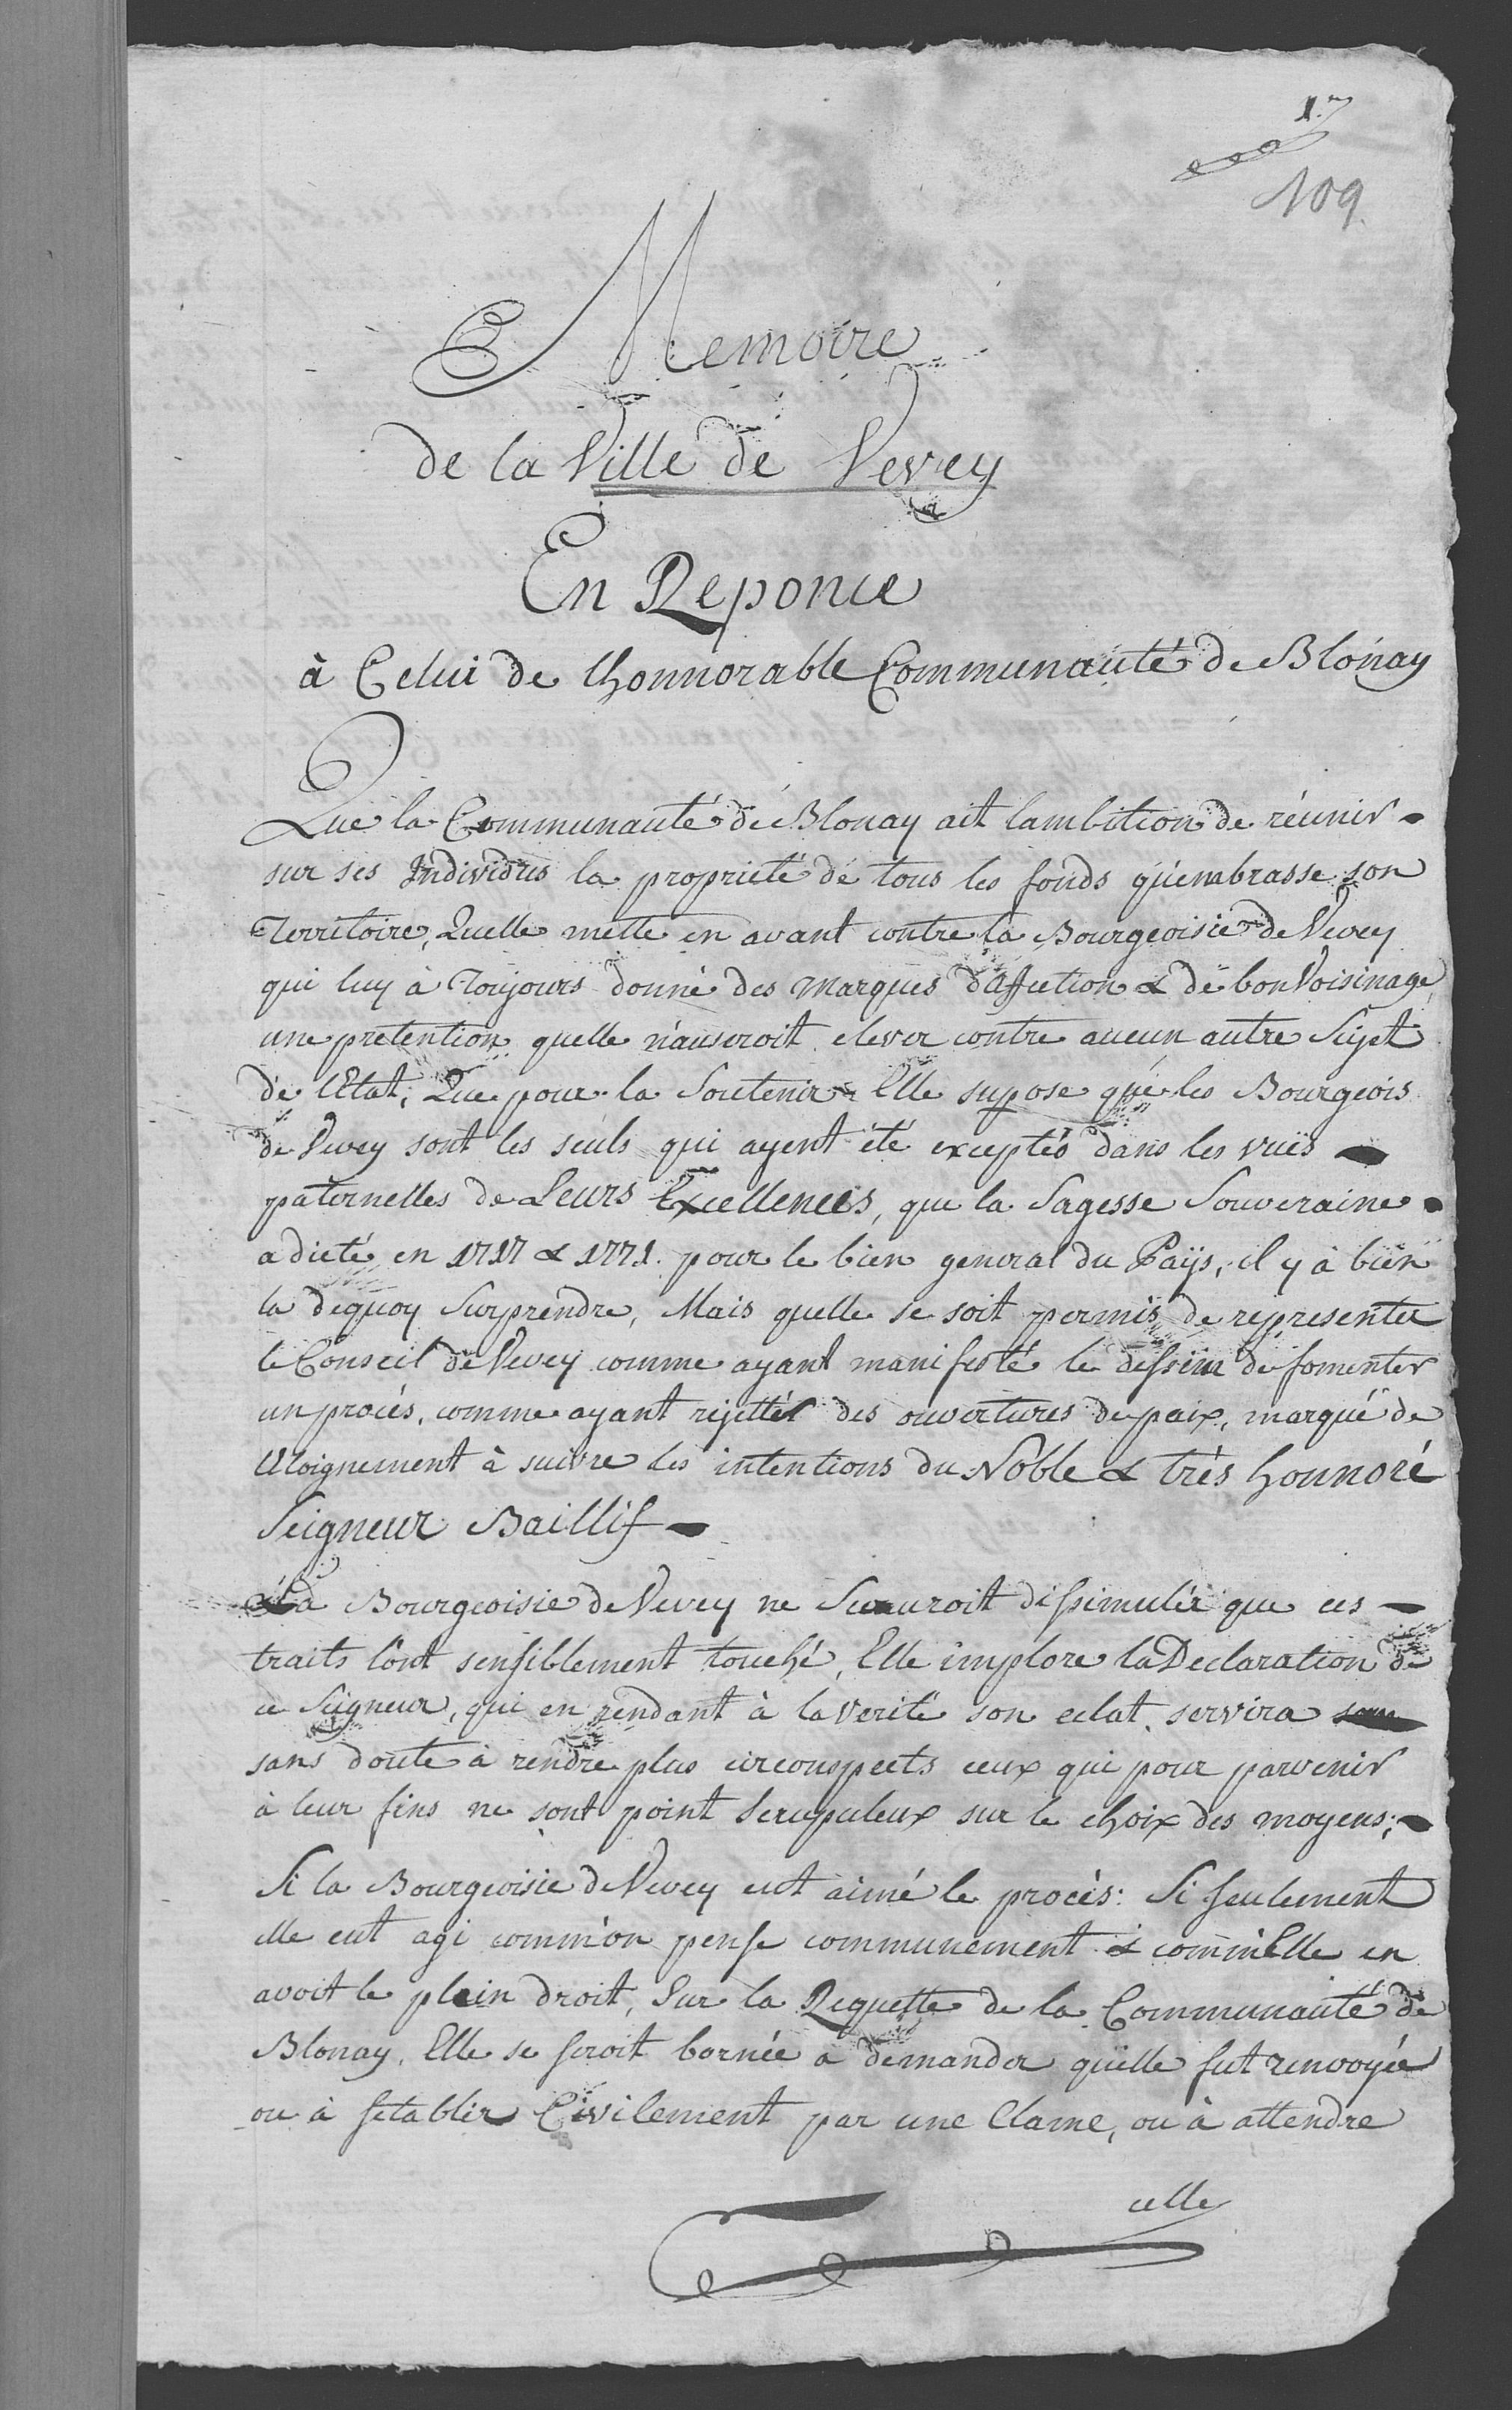 1.
109
Memoire
de la Ville de Vevey
En Reponce
à Celui de lhonnorable Communauté de Blonay
Que la Communauté de Blonay ait lambition de réunir
sur ses Individus la proprieté de tous les fonds qu'embrasse son
Territoire, Quelle mette en avant contre la Bourgeoisie de Vevey
qui luy à Toujours donné des marques d'affection & de bon Voisinage,
une pretention quelle n'auseroit elever contre aucun autre Sujet
de l'Etat; Que pour la Soutenir Elle supose que les Bourgeois
de Vevey sont les seuls qui ayent été exceptés dans les vuës
paternelles de Leurs Excellences, que la Sagesse Souveraine
a dicté en 1717 & 1771. pour le bien general du Païs, il y à bien
la dequoy Surprendre, Mais quelle se soit permis de representer
le Conseil de Vevey comme ayant manifesté le dessein de fomenter
un procés, comme ayant rejetter des ouvertures de paix, marqué de
l'Eloignement à suivre les intentions du Noble & trés honnoré
Seigneur Baillif
La Bourgeoisie de Vevey ne Scauroit dissimuler que ces
traits l'ont sensiblement touché, Elle implore la Declaration de
ce Seigneur, qui en rendant à la verité son eclat, servira
sans doute à rendre plus circonspects ceux qui pour parvenir
à leur fins ne sont point Scrupuleux sur le choix des moyens;
Si la Bourgeoisie de Vevey eut aimé le procès: Si seulement
elle eut agi comm'on pense communement & comm'Elle en
avoit le plein droit, Sur la Requette de la Communauté de
Blonay, Elle se seroit bornée a demander qu'elle fut renvoyée
ou à s'etablir Civilement par une Clame, ou à attendre
celle